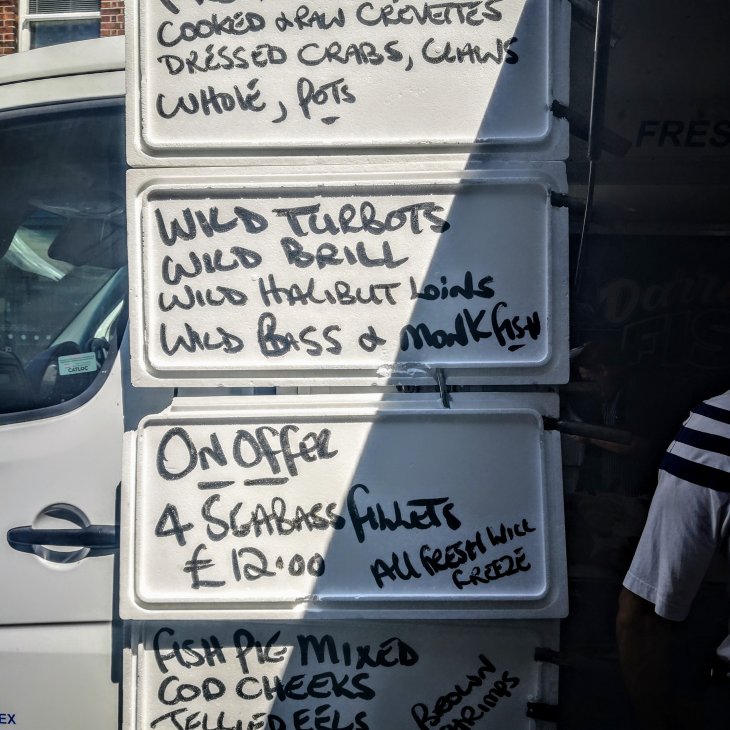 COOKED & RAW CREVETTES
DRESSED CRABS, CLAWS
WHOLE, POTS
WILD TURBOTS
WILD BRILL
WILD HALIBUT LOINS
WILD BASS & MONKFISH
ON OFFER
4 SEABASS FILLETS
£12.00
ALL FRESH WILL
FREEZE
FISH PIE MIXED
COD CHEEKS
JELLIED EELS
BROWN
SHRIMPS
CATLOC
EX
FRES